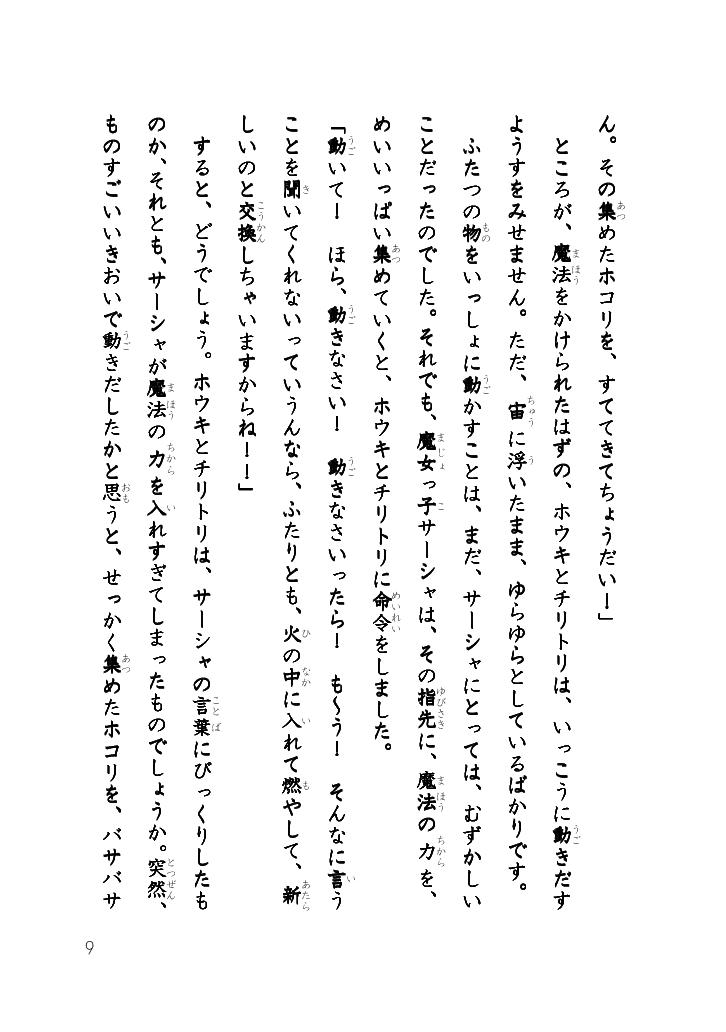 ん。その集めたホコリを、すててきてちょうだい！」
ところが、魔法をかけられたはずの、ホウキとチリトリは、いっこうに動きだす
ようすをみせません。ただ、宙に浮いたまま、ゆらゆらとしているばかりです。
ふたつの物をいっしょに動かすことは、まだ、サーシャにとっては、むずかしい
ことだったのでした。それでも、魔女っ子サーシャは、その指先に、魔法の力を、
めいいっぱい集めていくと、ホウキとチリトリに命令をしました。
「動いて！　ほら、動きなさい！　動きなさいったら！　も～う！　そんなに言う
ことを聞いてくれないっていうんなら、ふたりとも、火の中に入れて燃やして、新
しいのと交換しちゃいますからね！！」
すると、どうでしょう。ホウキとチリトリは、サーシャの言葉にびっくりしたも
のか、それとも、サーシャが魔法の力を入れすぎてしまったものでしょうか。突然、
ものすごいいきおいで動きだしたかと思うと、せっかく集めたホコリを、バサバサ
9